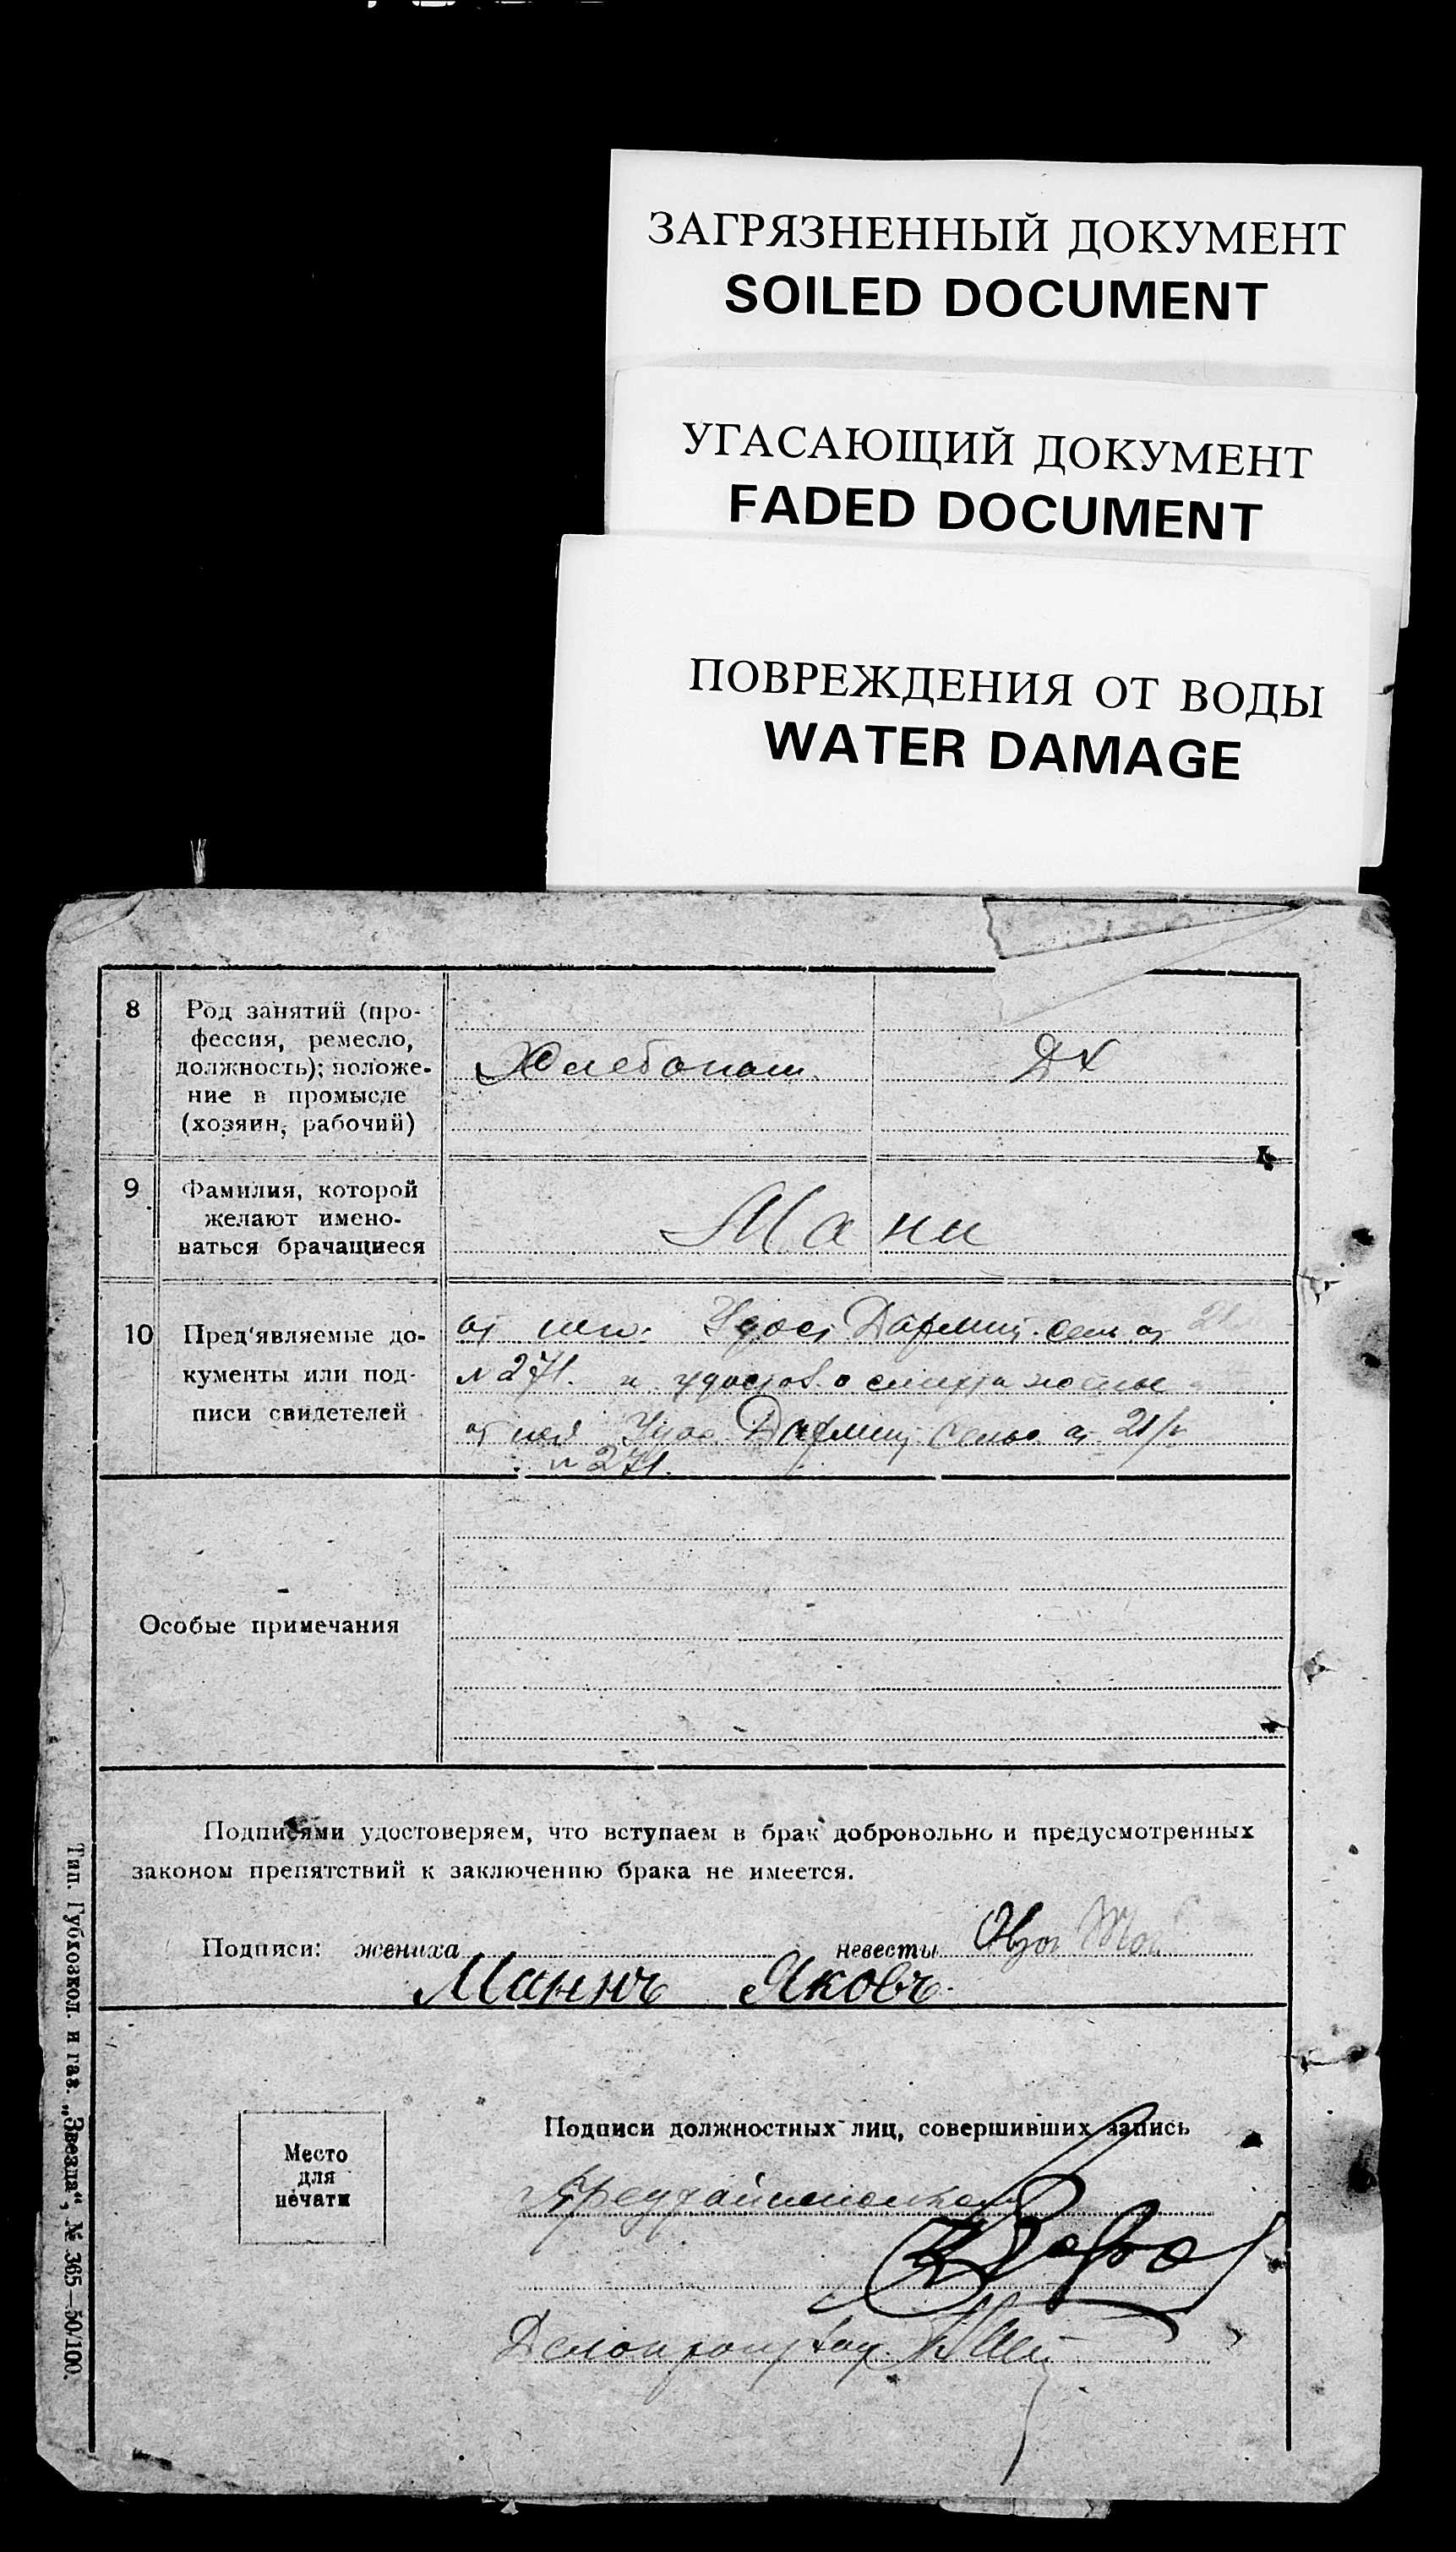 ЗАГРЯЗНЕННЫЙ ДОКУМЕНТ
SOILED DOCUMENT
УГАСАЮЩИЙ ДОКУМЕНТ
FADED DOCUMENT
ПОВРЕЖДЕНИЯ ОТ ВОДЫ
WATER DAMAGE
8
Род занятий (про-
фессия, ремесло,
должность); положе-
ние в промысле
(хозяин, рабочий)
Хлебопаш.
ДХ
9
Фамилия, которой
желают имено-
ваться брачащиеся
Манн
10
Пред'являемые до-
кументы или под-
писи свидетелей
от
№ 271. и удостов. о смерти жены
от нея от 21/
№ 271.
Особые примечания
Подписями удостоверяем, что вступаем в брак добровольно и предусмотренных
законом препятствий к заключению брака не имеется.
Подписи: жениха невесты
Маннъ Яковъ.
Место
для
печати
Подписи должностных лиц, совершивших запись
Предрайисполкома
Делопроизвод.
Тип. Губхозкол. и газ. „Звезда", № 365—50/100.